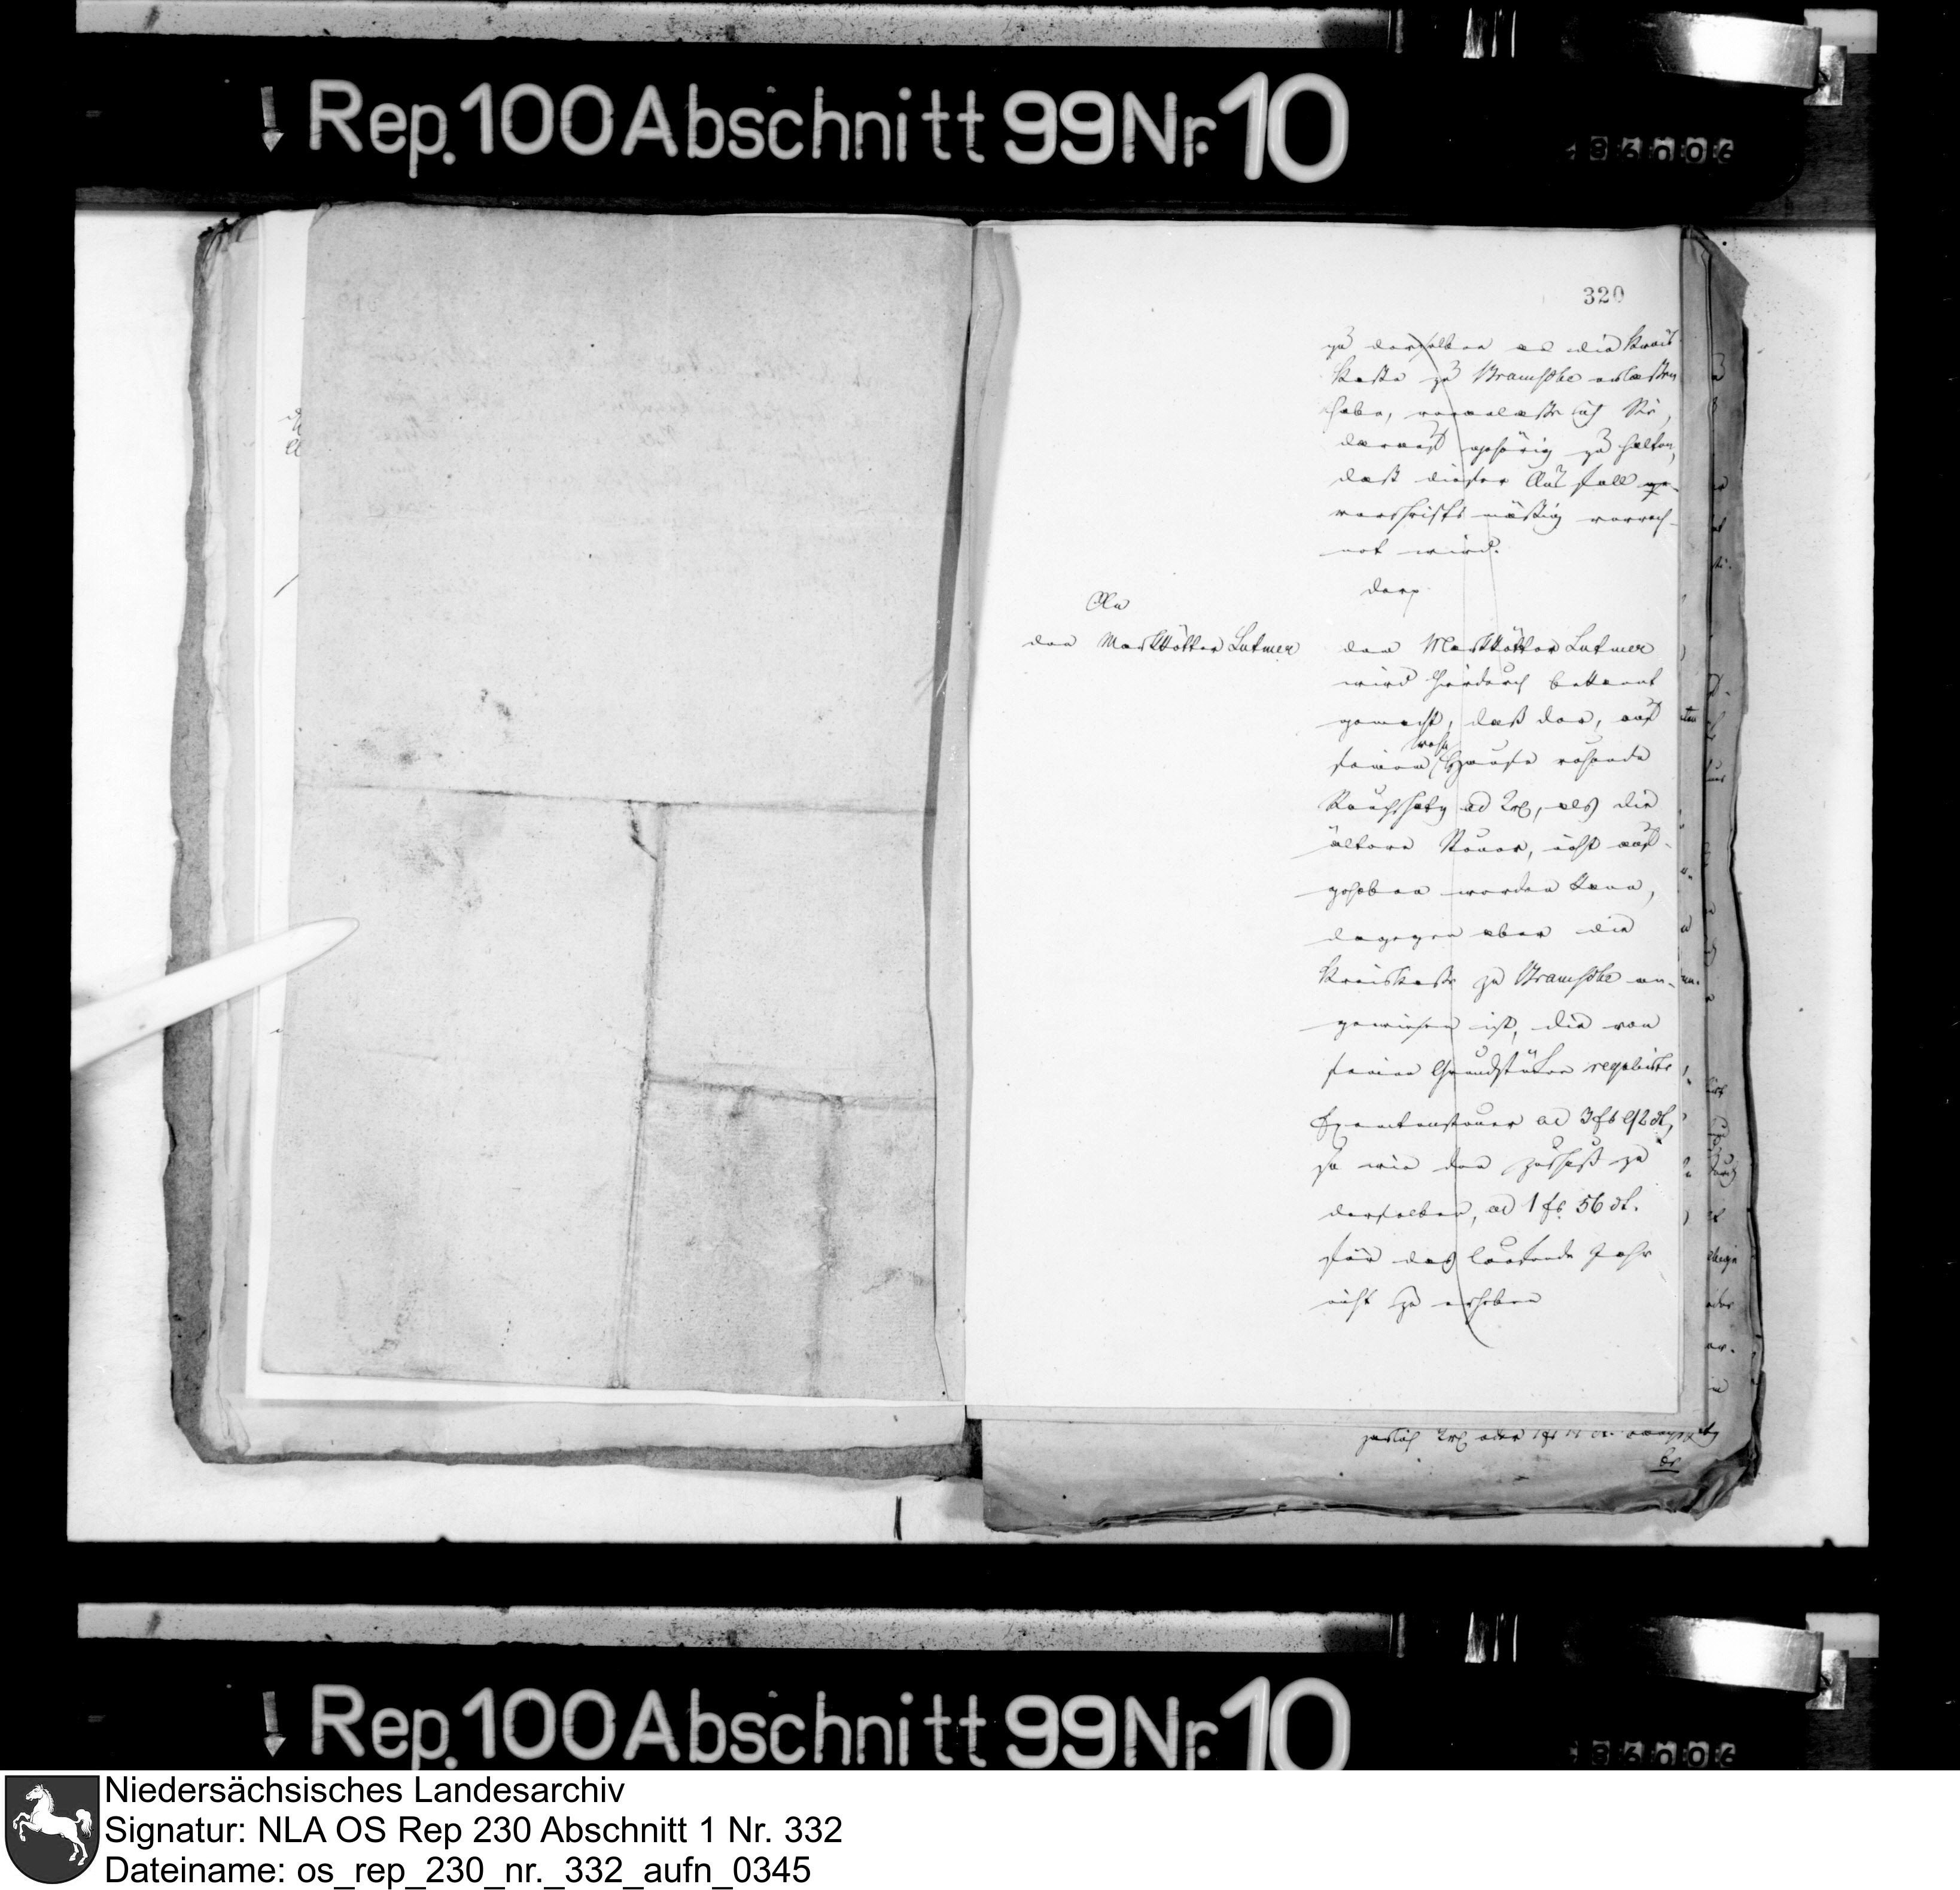 ↓ Rep. 100 Abschnitt 99 Nr. 10
320
zu derselben an die Kreis
Kasse zu Bramsche erlassen
habe, veranlasse ich Sie,
darauf gehörig zu halten,
daß dieser Ausfall ge-
vorschriftsmäßig verrech-
net wird.
An
den Markkötter Lutmer
den Markkötter Lutmer
wird hierdurch bekannt
gemacht, daß der, auf
seinem Wohn Hause ruhende
Rauchschatz ad 2 rt, als die
ältere Steuer, nicht auf-
gehoben werden kann,
dagegen aber die
Kreiskasse zu Bramsche an-
gewiesen ist, die von
seinen Grundstücken regulirte
Exemtensteuer ad 3 fs 92 ct,
so wie den Zuschuß zu
derselben, ad 1 fs. 56 ct.
für das laufende Jahr
nicht zu erheben
↓ Rep. 100 Abschnitt 99 Nr. 10
Niedersächsisches Landesarchiv
Signatur: NLA OS Rep 230 Abschnitt 1 Nr. 332
Dateiname: os_rep_230_nr._332_aufn_0345